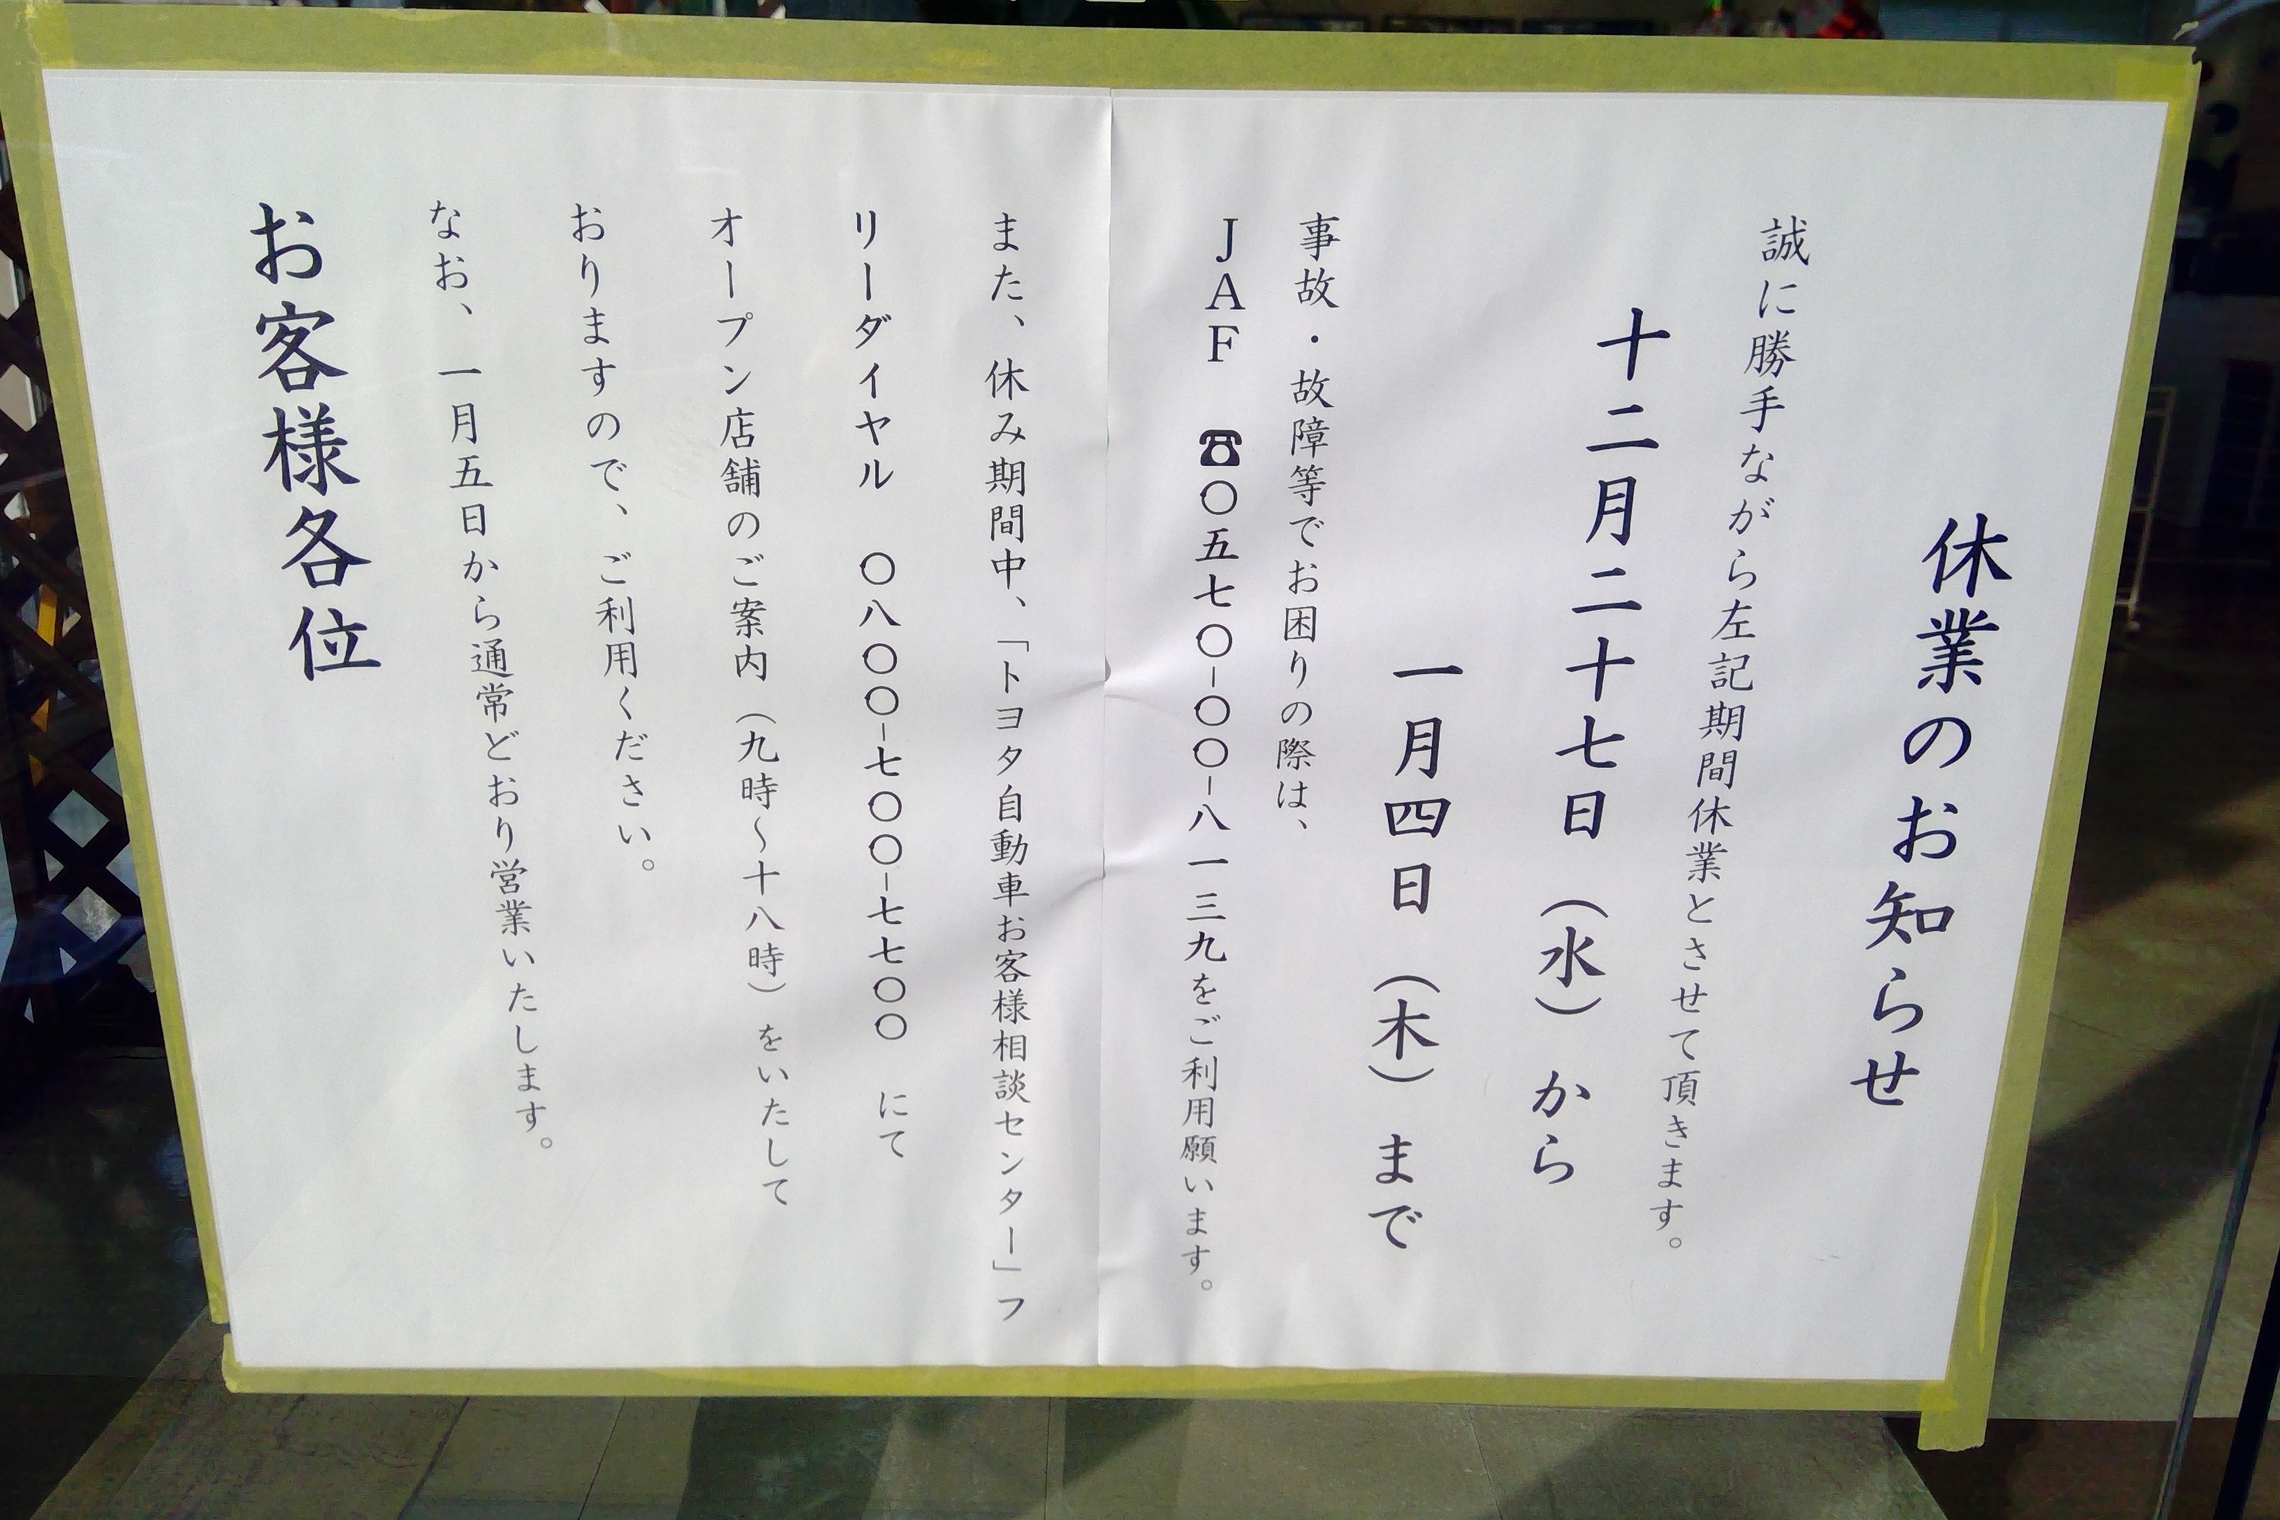 休業のお知らせ
誠に勝手ながら左記期間休業とさせて頂きます。
十二月二十七日（水）から
一月四日（木）まで
事故・故障等でお困りの際は、
ＪＡＦ　☎〇五七〇−〇〇−八一三九をご利用願います。
また、休み期間中、「トヨタ自動車お客様相談センター」フ
リーダイヤル　〇八〇〇−七〇〇−七七〇〇　にて
オープン店舗のご案内（九時～十八時）をいたして
おりますので、ご利用ください。
なお、一月五日から通常どおり営業いたします。
お客様各位